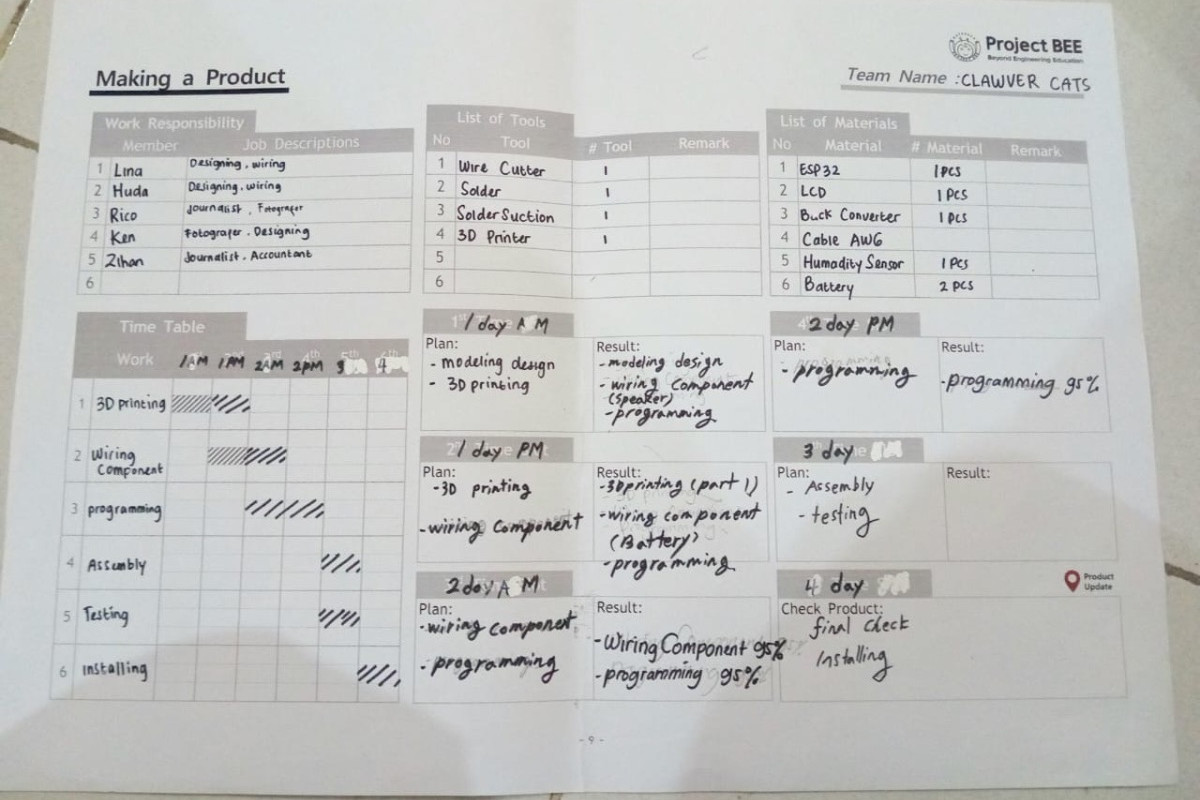 Project BEE
Beyond Engineering Education
Making a Product
Team Name : CLAWVER CATS
Work Responsibility
Member Job Descriptions
1 Lina Designing, wiring
2 Huda Designing, wiring
3 Rico Journalist, Fotografer
4 Ken Fotografer. Designing
5 Zihan Journalist. Accountant
6
List of Tools
No Tool # Tool Remark
1 Wire Cutter 1
2 Solder 1
3 Solder Suction 1
4 3D Printer 1
5
6
List of Materials
No Material # Material Remark
1 ESP32 1 PCS
2 LCD 1 PCS
3 Buck Converter 1 PCS
4 Cable AWG
5 Humadity Sensor 1 PCS
6 Battery 2 PCS
Time Table
Work 1 AM 1 PM 2 AM 2 PM 3 4
1 3D printing
2 Wiring
Component
3 programming
4 Assembly
5 Testing
6 Installing
1 day A M
Plan:
- modeling design
- 3D printing
Result:
- modeling design
- wiring Component
(speaker)
- programming
1 day PM
Plan:
- 3D printing
- wiring Component
Result:
- 3D printing (part 1)
- wiring component
(Battery)
- programming
2 day A M
Plan:
- wiring component
- programming
Result:
- Wiring Component 95%
- programming 95%
2 day PM
Plan:
- programming
Result:
- programming 95%
3 day
Plan:
- Assembly
- testing
Result:
4 day
Product
Update
Check Product:
final check
Installing
- 9 -